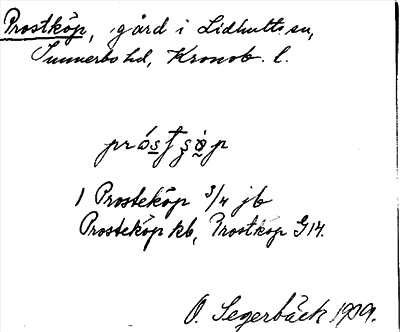 Prostköp, gård i Lidhults sn,
Sunnerbo hd, Kronob. l.
próstšö̀p
1 Prosteköp 3/4 jb
Prosteköp kb, Prostköp G14.
O. Segerbäck 1909.